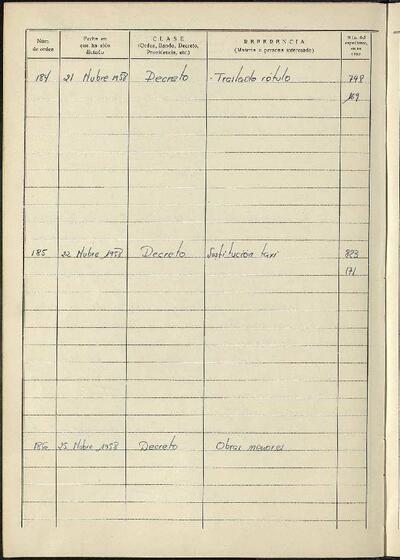 Núm. de orden
Fecha en que ha sido dictado
CLASE
(Orden, Bando, Decreto, Providencia, etc.)
REFERENCIA
(Materia o persona interesada)
Núm. del expediente,
184 21 Nvbre 1958 Decreto Traslado rótulo 798
169
185 22 Nvbre 1958 Decreto Sustitución taxi 823
171
186 25 Nvbre 1958 Decreto Obras menores